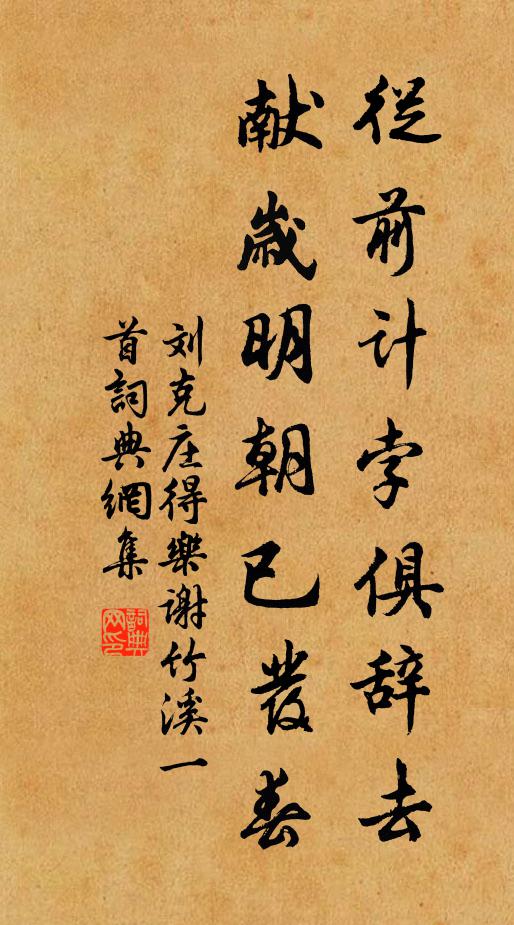 從前计孛俱辞去
献歲明朝已發春
刘克庄得樂谢竹溪一
首詞典網集
詞典
网印